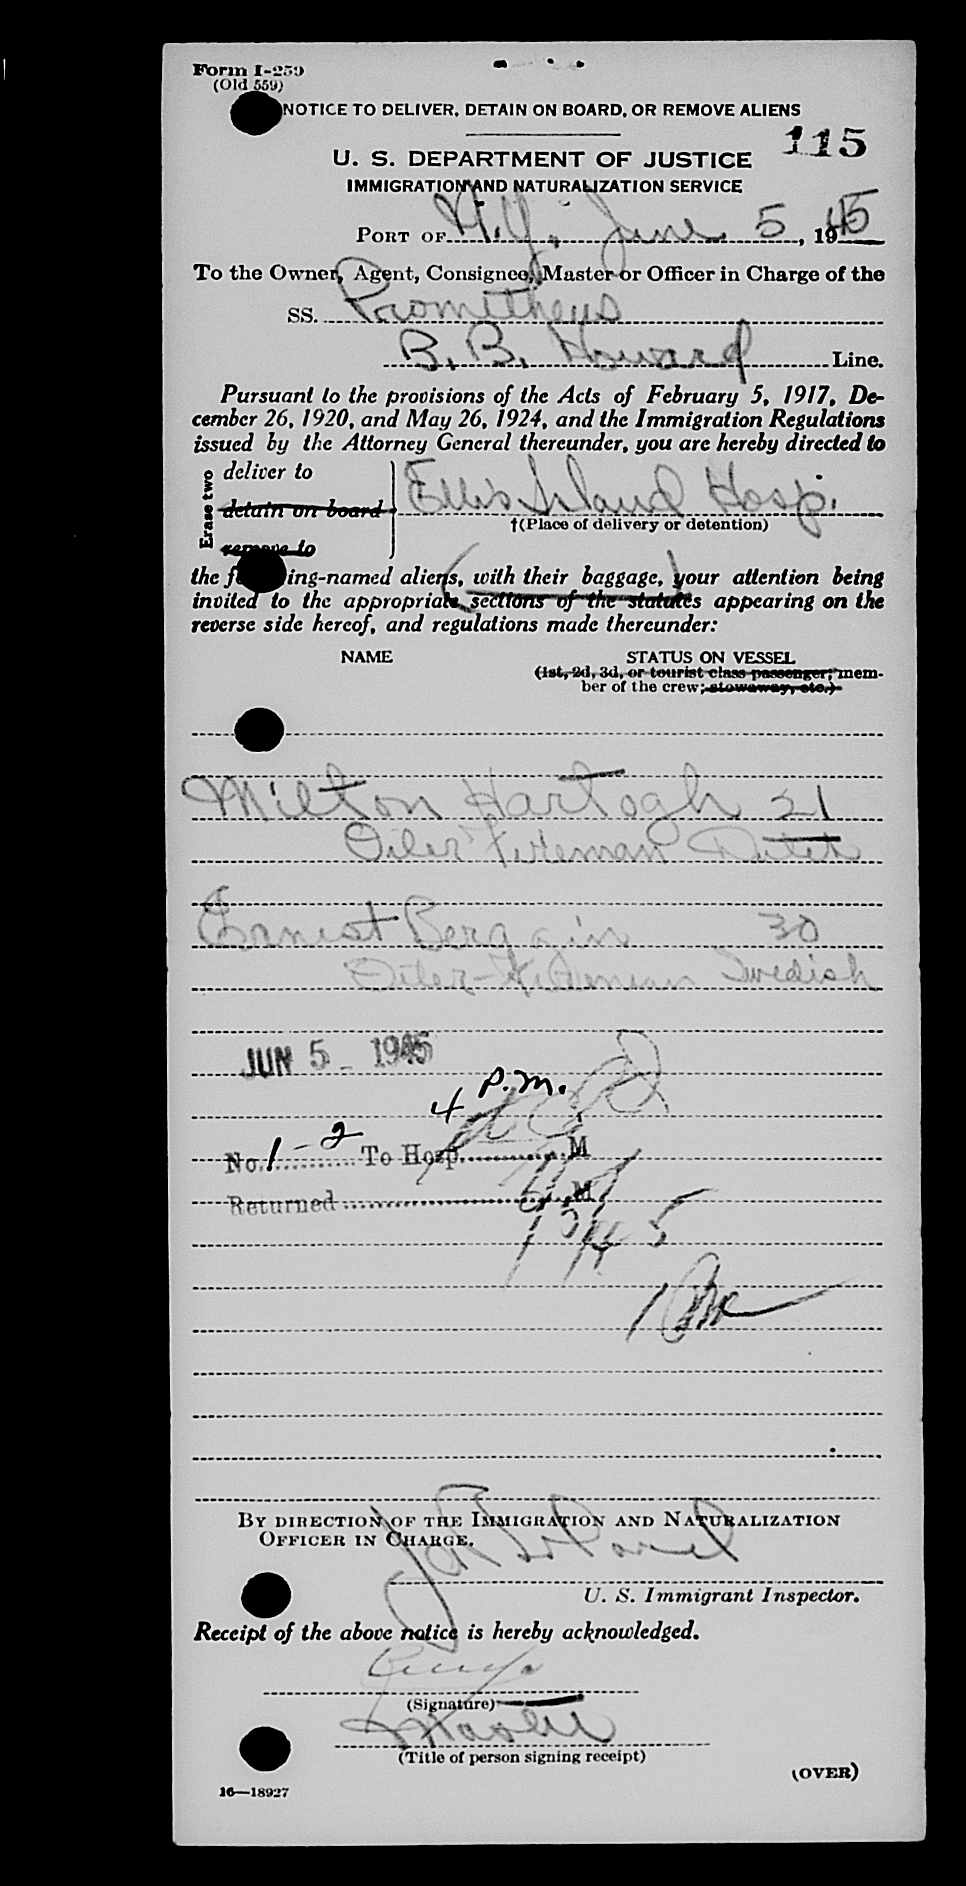 Form I-259
(Old 559)
NOTICE TO DELIVER, DETAIN ON BOARD, OR REMOVE ALIENS
115
U. S. DEPARTMENT OF JUSTICE
IMMIGRATION AND NATURALIZATION SERVICE
PORT OF N.Y. June 5, 1945
To the Owner, Agent, Consignee, Master or Officer in Charge of the
SS. Prometheus
B. B. Howard Line.
Pursuant to the provisions of the Acts of February 5, 1917, De-
cember 26, 1920, and May 26, 1924, and the Immigration Regulations
issued by the Attorney General thereunder, you are hereby directed to
Erase two
deliver to
detain on board
remove to
Ellis Island Hosp.
†(Place of delivery or detention)
the following-named aliens, with their baggage, your attention being
invited to the appropriate sections of the statutes appearing on the
reverse side hereof, and regulations made thereunder:
NAME STATUS ON VESSEL
(1st, 2d, 3d, or tourist class passenger; mem-
ber of the crew; stowaway, etc.)
Milton Hartogh 21
Oiler Fireman Dutch
Ernest Bergain 30
Oiler-Fireman Swedish
JUN 5 - 1945
4 P.M.
No. 1-2 To Hosp. M
Returned M
BY DIRECTION OF THE IMMIGRATION AND NATURALIZATION
OFFICER IN CHARGE.
U. S. Immigrant Inspector.
Receipt of the above notice is hereby acknowledged.
(Signature)
Master
(Title of person signing receipt)
(OVER)
16—18927